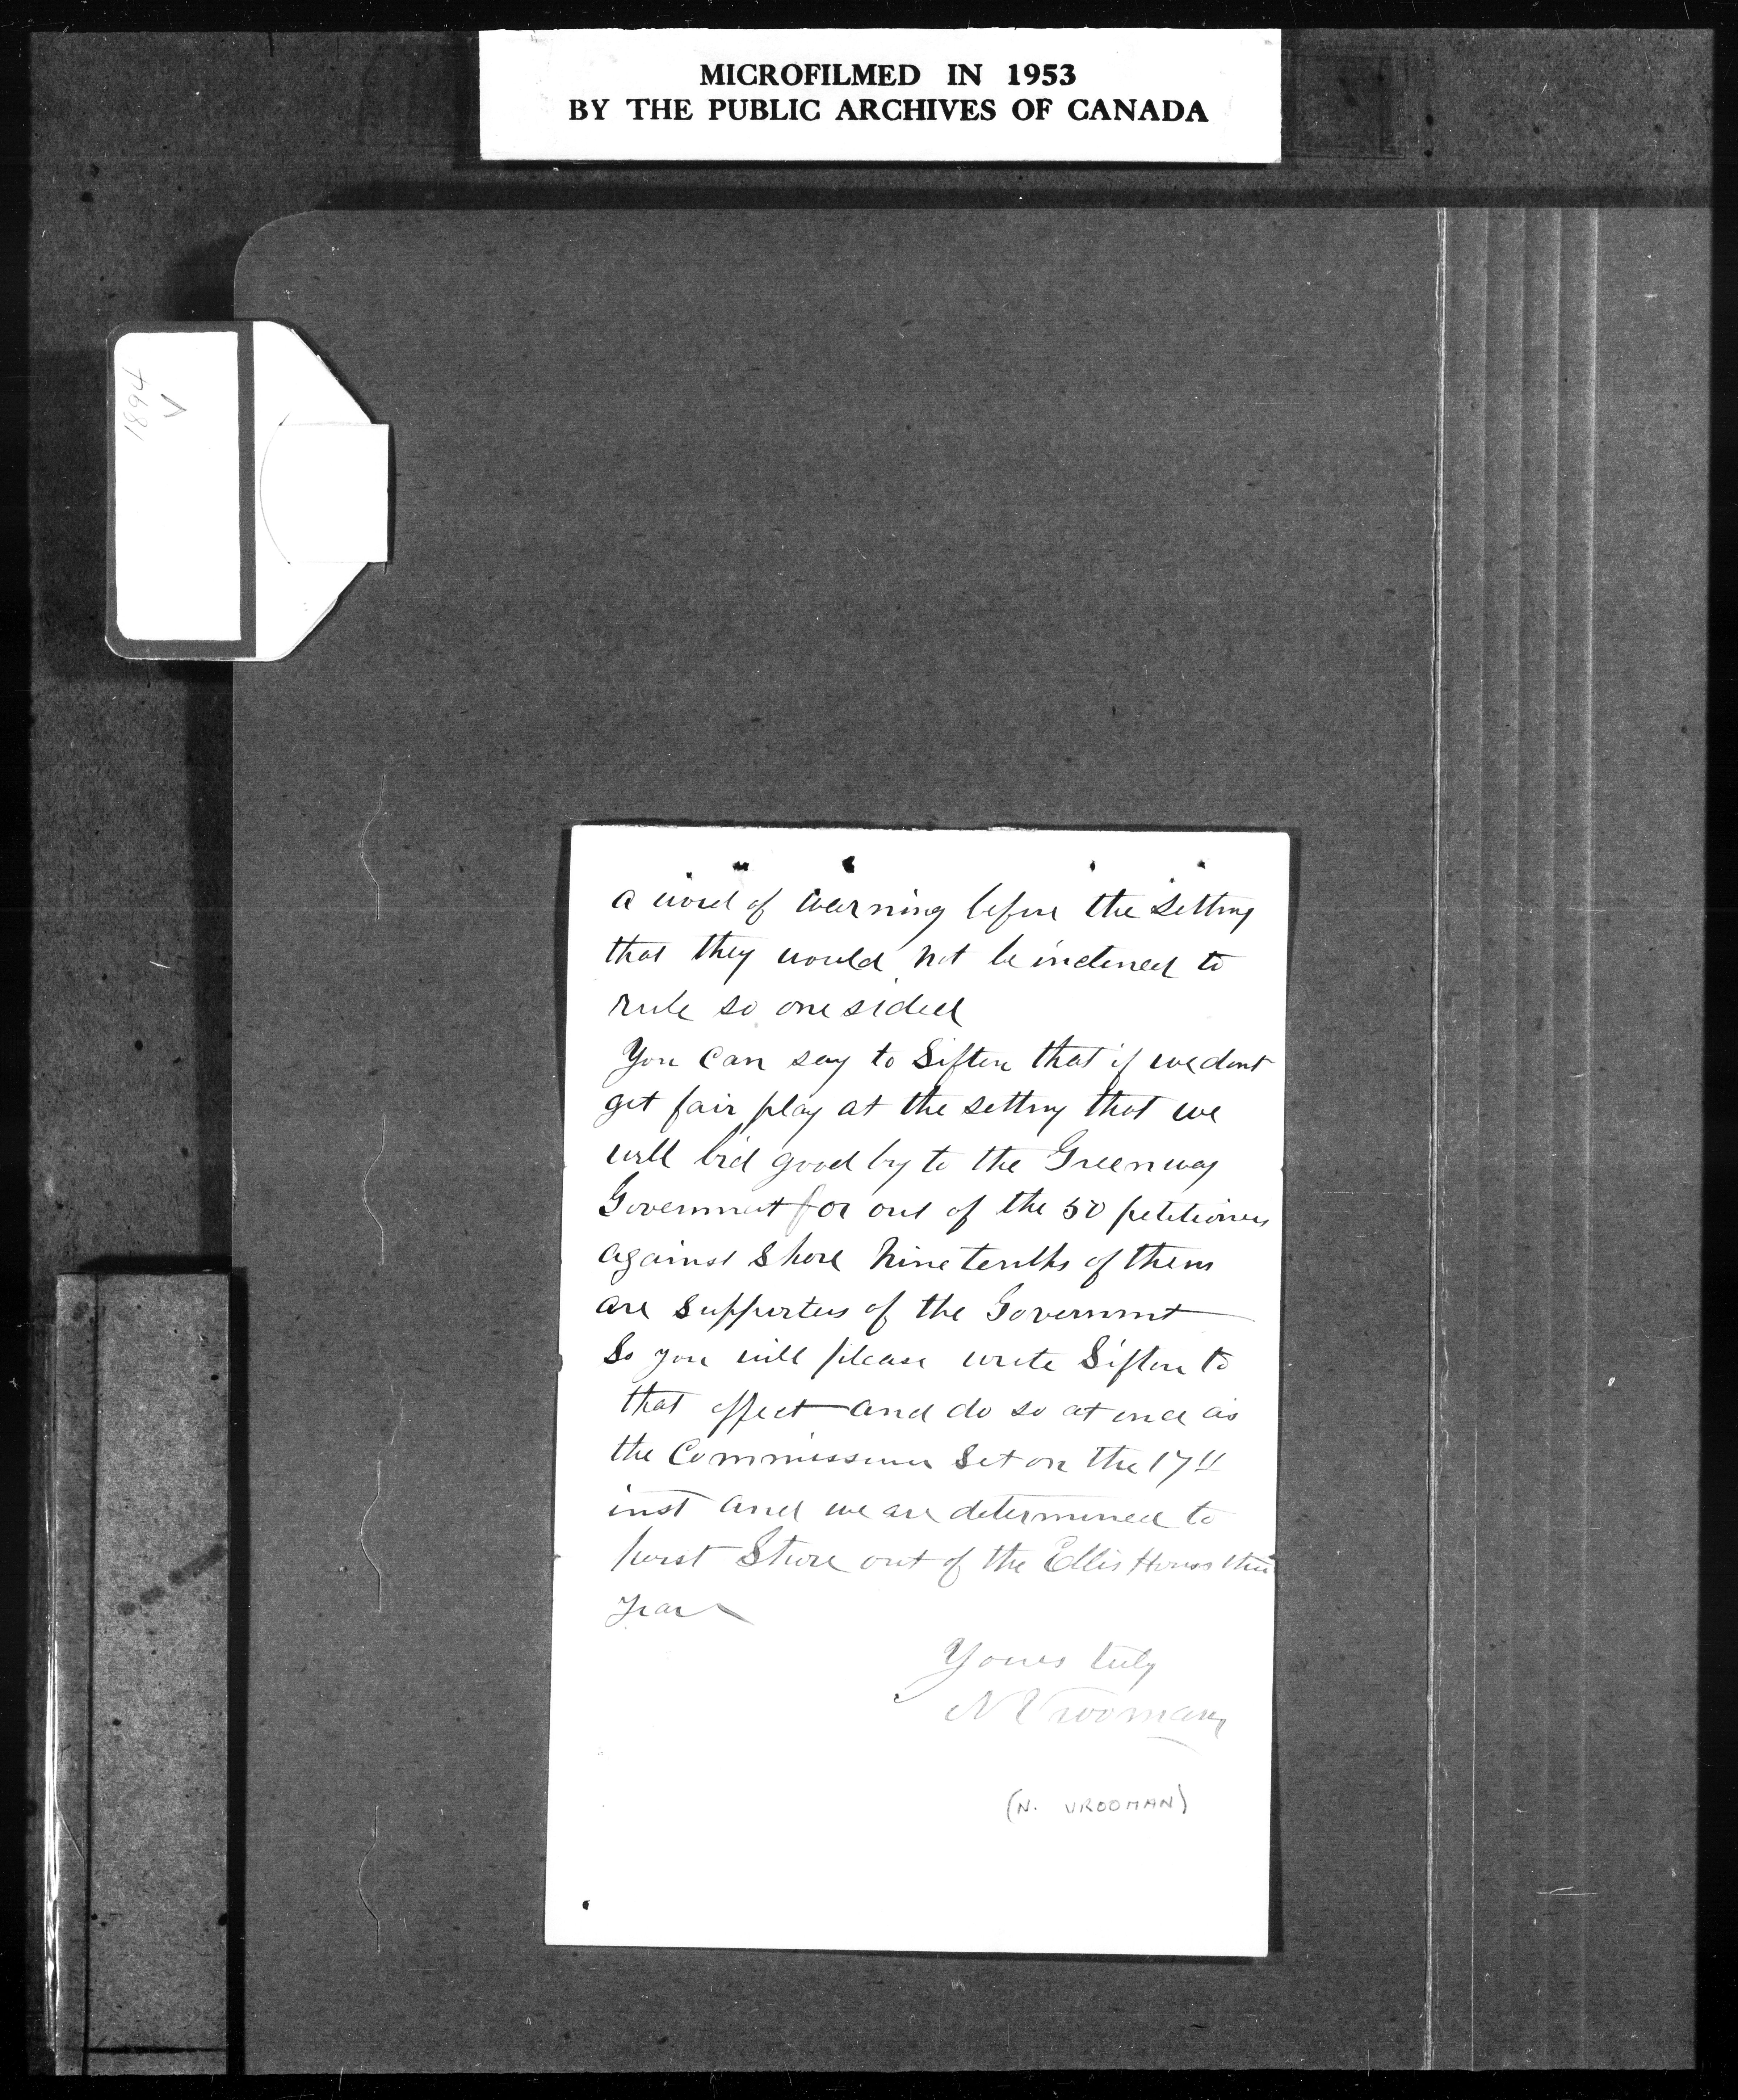 MICROFILMED IN 1953
BY THE PUBLIC ARCHIVES OF CANADA
1894
V
a word of warning before the setting
that they would not be inclined to
rule so one sided
You can say to Sifton that if we dont
get fair play at the setting that we
will bid good by to the Greenway
Government for out of the 50 petitioners
against Shore nine tenths of them
are supporters of the Government
So you will please write Sifton to
that effect and do so at once as
the Commissioners Set on the 17th
inst and we are determined to
Shore out of the Ellis House this
Year
Yours truly
N Vrooman
(N. VROOMAN)